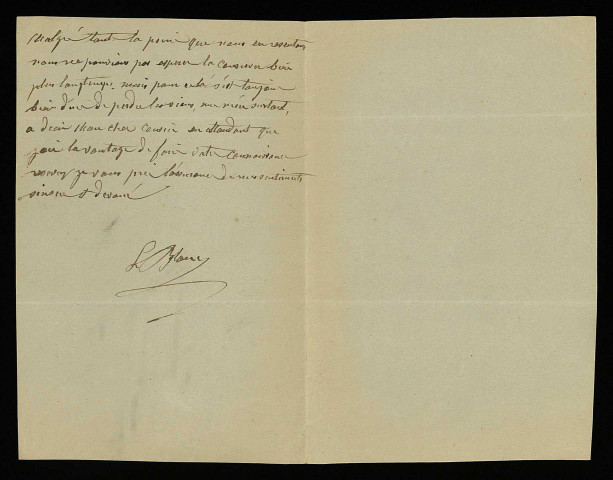 Malgré toute la peine que nous en ressentons
nous ne pouvions pas esperer la conserver bien
plus longtemps, mais pour cela s'est toujour
bien dure de perdre les siens, une mère surtout,
a Dieu Mon cher cousin en attendant que
j'aie la vantage de faire votre connaissance
recevez je vous prie l'assurance de mes sentiments
sincere et devoué
L. Blanc